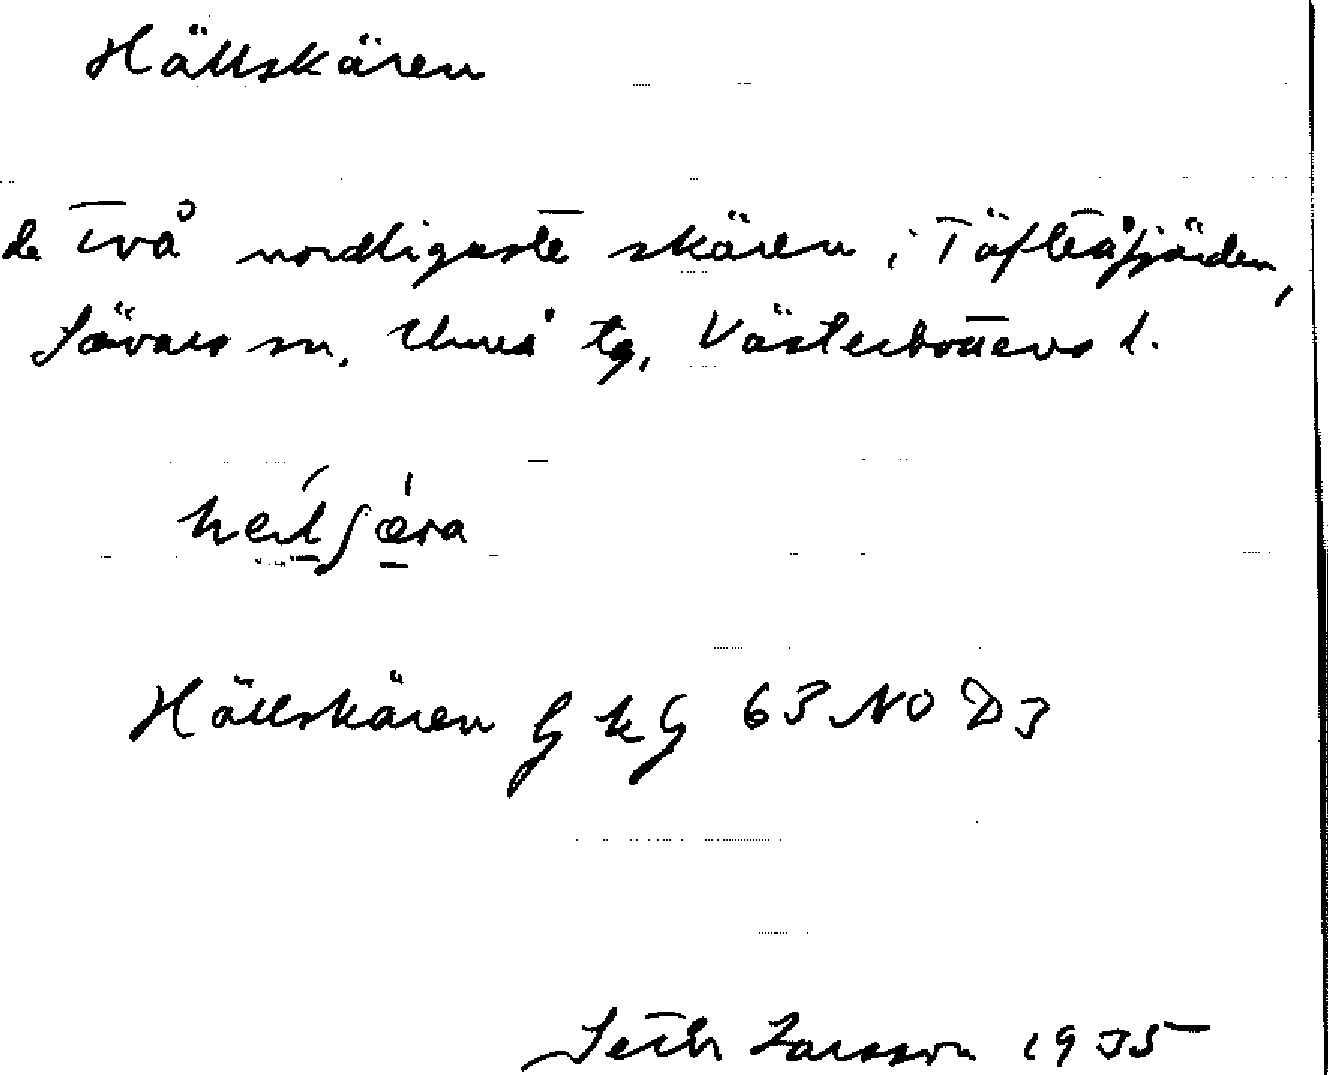 Hällskären
de två nordligaste skären i Täfteåfjärden,
Sävars sn, Umeå tg, Västerbottens l.
Hällskären G k G 63 NO D3
Seth Larsson 1935